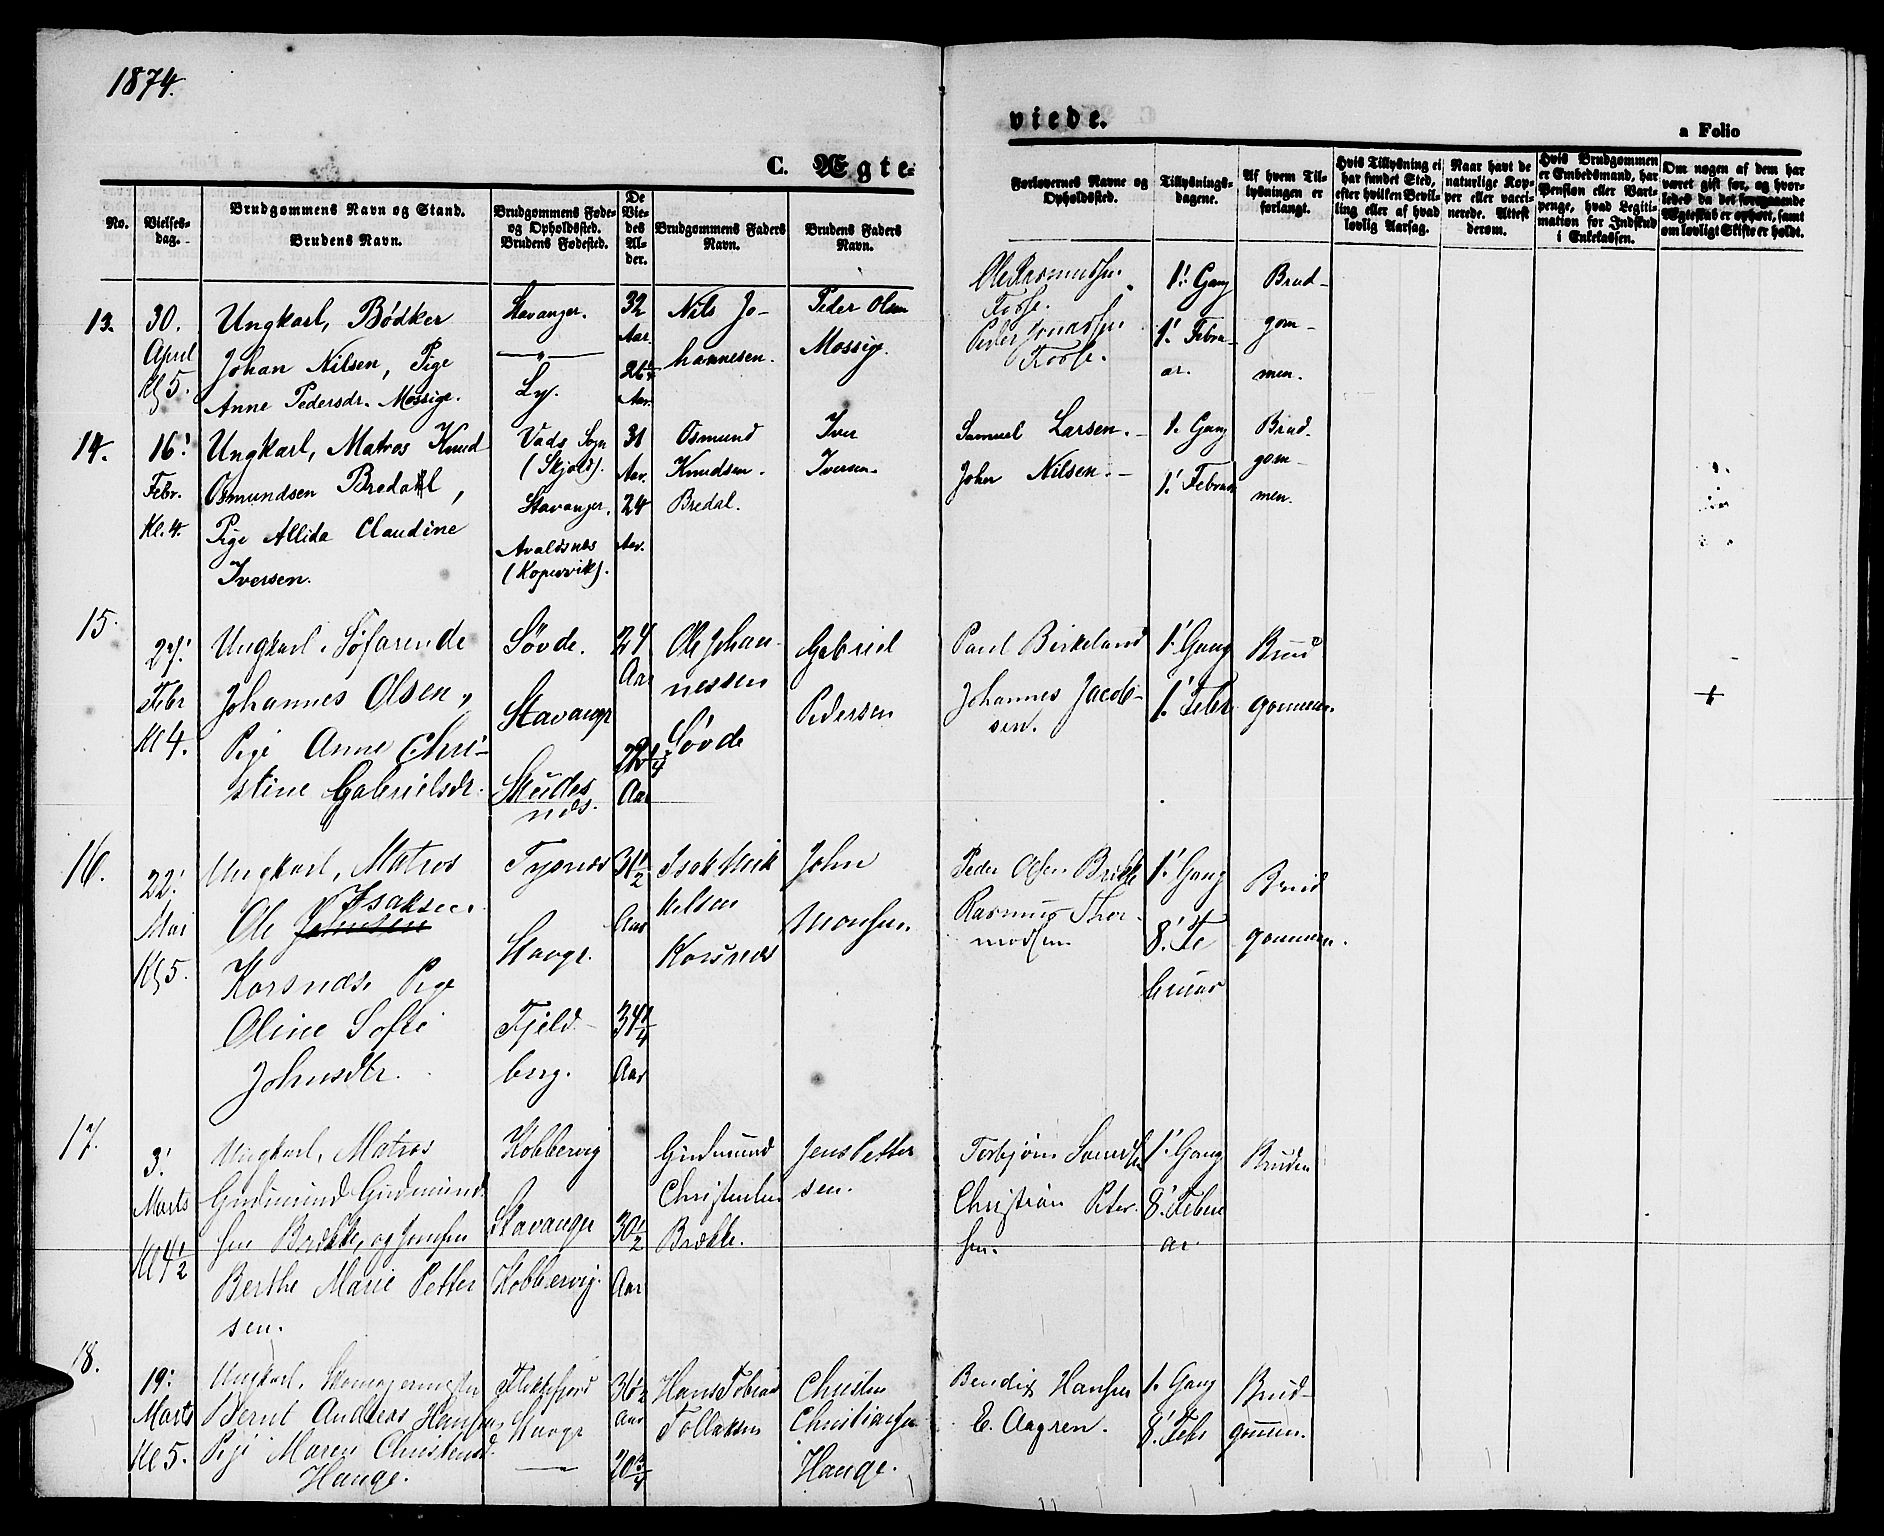 1874.
C. Ægte-
viede.
a Folio
No.
Vielses-
dag.
Brudgommens Navn og Stand.
Brudens Navn.
Brudgommens Føde-
og Opholdssted.
Brudens Fødested.
De
Vie-
des
Al-
der.
Brudgommens Faders
Navn.
Brudens Faders
Navn.
Forlovernes Navne og
Opholdssted.
Tillysnings-
dagene.
Af hvem Til-
lysningen er
forlangt.
Hvis Tillysning ei
har fundet Sted,
efter hvilken Bevil-
ling eller af hvad
lovlig Aarsag.
Naar havt de
naturlige Kop-
per eller vacci-
nerede. Attest
derom.
Hvis Brudgommen
er Embedsmand, har
Pension eller Vart-
penge, hvad Legiti-
mation for Indskud
i Enkekassen.
Om nogen af dem har
været gift før, og hvor-
ledes da det foregaaende
Ægteskab er ophørt, samt
om lovligt Skifte er holdt.
13.
30.
April
Kl 5.
Ungkarl, Bødker
Johan Nilsen, Pige
Anne Pedersdr. Mossige.
Stavanger.
— " —
Ly.
32
Aar.
26 1/4
Aar.
Nils Jo-
hannesen.
Peder Olsen
Mossige.
Ole Rasmussen
Fosse.
Peder
Fosse.
1' Gang
1' Febru-
ar.
Brud-
gom-
men.
14.
16'
Febr.
Kl. 4.
Ungkarl, Matros Knud
Osmundsen Bredal,
Pige Allida Claudine
Iversen.
Vads Sogn
(Skjold).
Stavanger.
Avaldsnes
(Kopervik).
31
Aar.
24
Aar.
Osmund
Knudsen
Bredal.
Iver
Iversen.
Samuel Larsen. -
Joh Nilsen. -
1. Gang
1' Februar
Brud-
gom-
men.
15.
27'
Febr
Kl 4.
Ungkarl, Søfarende
Johannes Olsen,
Pige Anne Chri-
stine Gabrielsdr.
Søvde.
Stavangr
Skudes
næs.
24
Aar
22 1/4
Aar
Ole Johan-
nessen
Søvde
Gabriel
Pedersen
Paul Birkeland
Johannes Jacob-
sen.
1' Gang
1' Febr
Brud
gommen.
+
16.
22'
Mai
Kl 5.
Ungkarl, Matros
Isaksen
Ole Johnsen
Korsnæs, Pige
Oline Sofie
Johnsdtr.
Tysnæs
Stavgr.
Fjeld-
berg.
31 1/2
Aar
34 1/4
Aar
Isak Mik
kelsen
Korsnæs
John
Monsen.
Peder Olsen Brække
Rasmus Thor-
modsen
1' Gang
8' Fe
bruar
Brud
gommen.
17.
3'
Marts
Kl 4 1/2
Ungkarl, Matros
Gudmund Gudmund
sen Brække, og Jomfru
Berthe Marie Petter
sen.
Kobbervig
Stavanger
Kobbervig.
30 1/2
Aar
Gudmund
Christensen
Brække.
Jens Petter
sen.
Torbjørn
Christian Peter-
sen.
1' Gang
8' Febru
ar.
Bruden
18.
19'
Marts
Kl 5.
Ungkarl, Skomagermester
Bernt Andreas Hansen,
Pige Maren Christensd
Hauge.
Flekkefjord
Stavgr
—
36 1/2
Aar
20 3/4
Hans Tobias
Tollaksen
Christen
Christiansen
Hauge.
Bendix Hansen
E. Aagren.
1. Gang
8' Febr
Brud-
gommen.